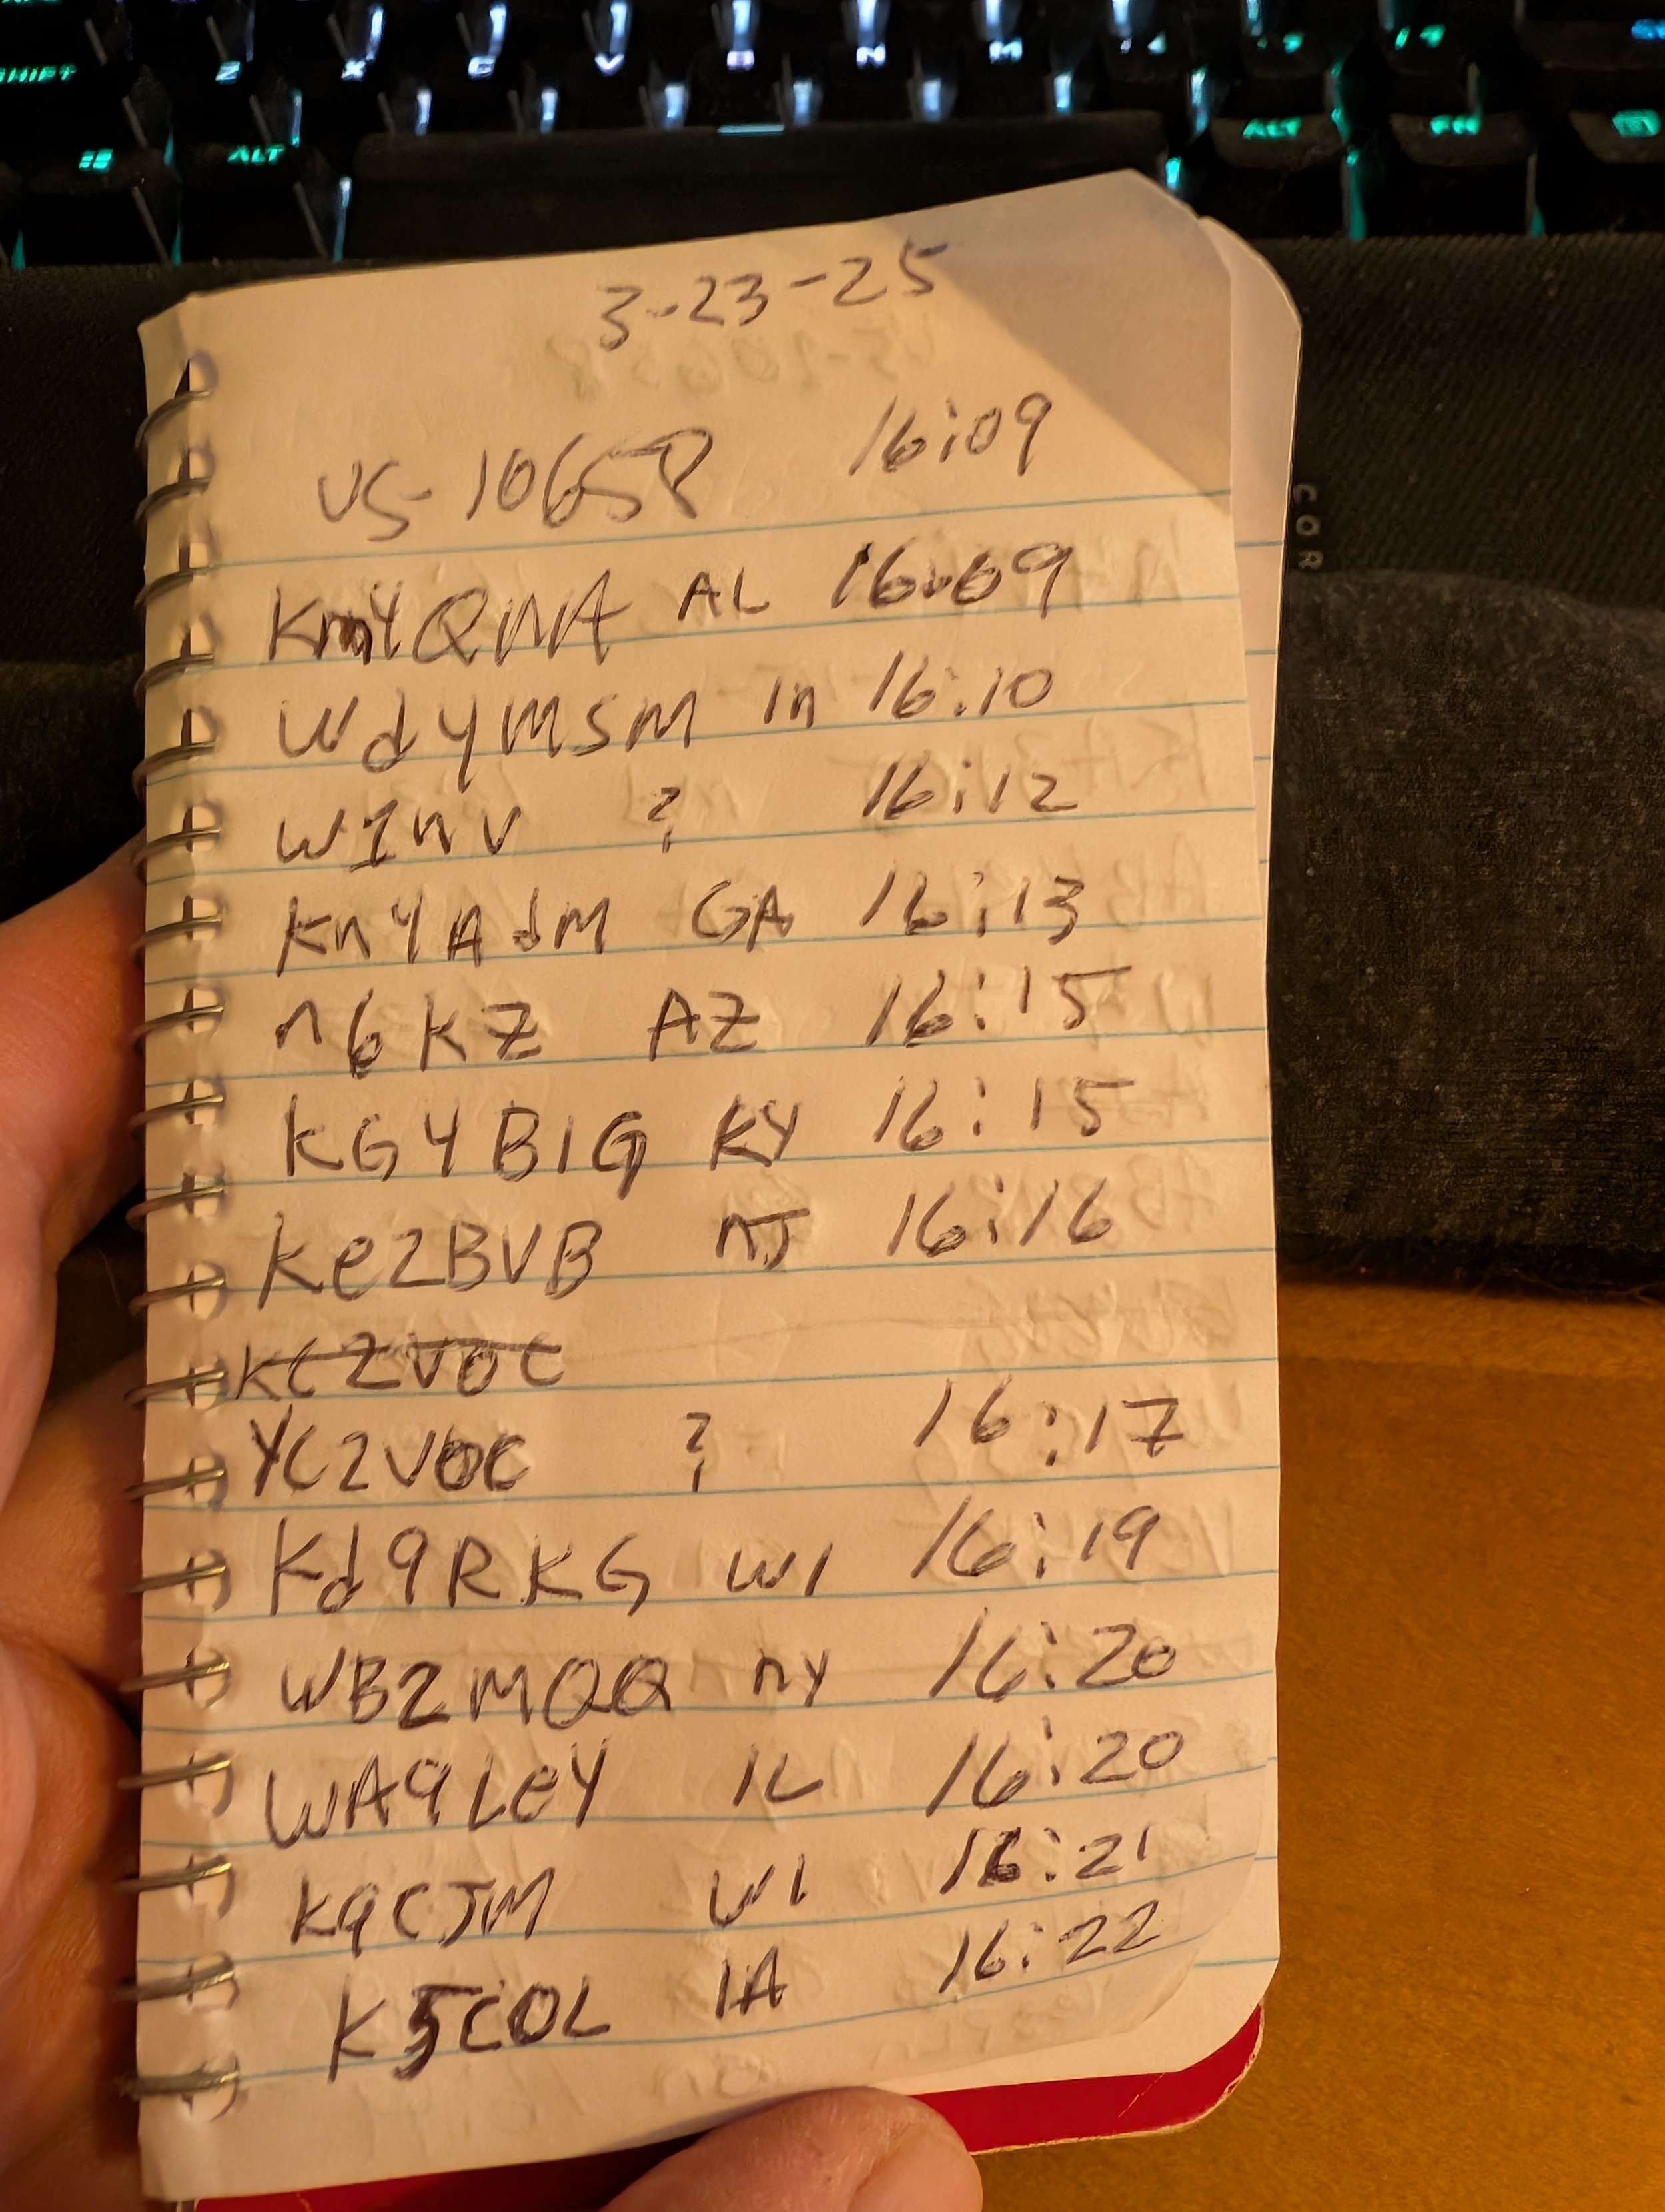 SHIFT Z X C V B N M
ALT ALT FN
3-23-25
US-10658 16:09
Km4QNA AL 16:09
Wd4MSM In 16:10
W1nV ? 16:12
Kn4AdM GA 16:13
n6KZ AZ 16:15
KG4BIG KY 16:15
Ke2BVB nJ 16:16
KC2VOC
YC2VOC ? 16:17
Kd9RKG WI 16:19
WB2MQQ nY 16:20
WA9LeY IL 16:20
K9CJM WI 16:21
K5COL IA 16:22
COR